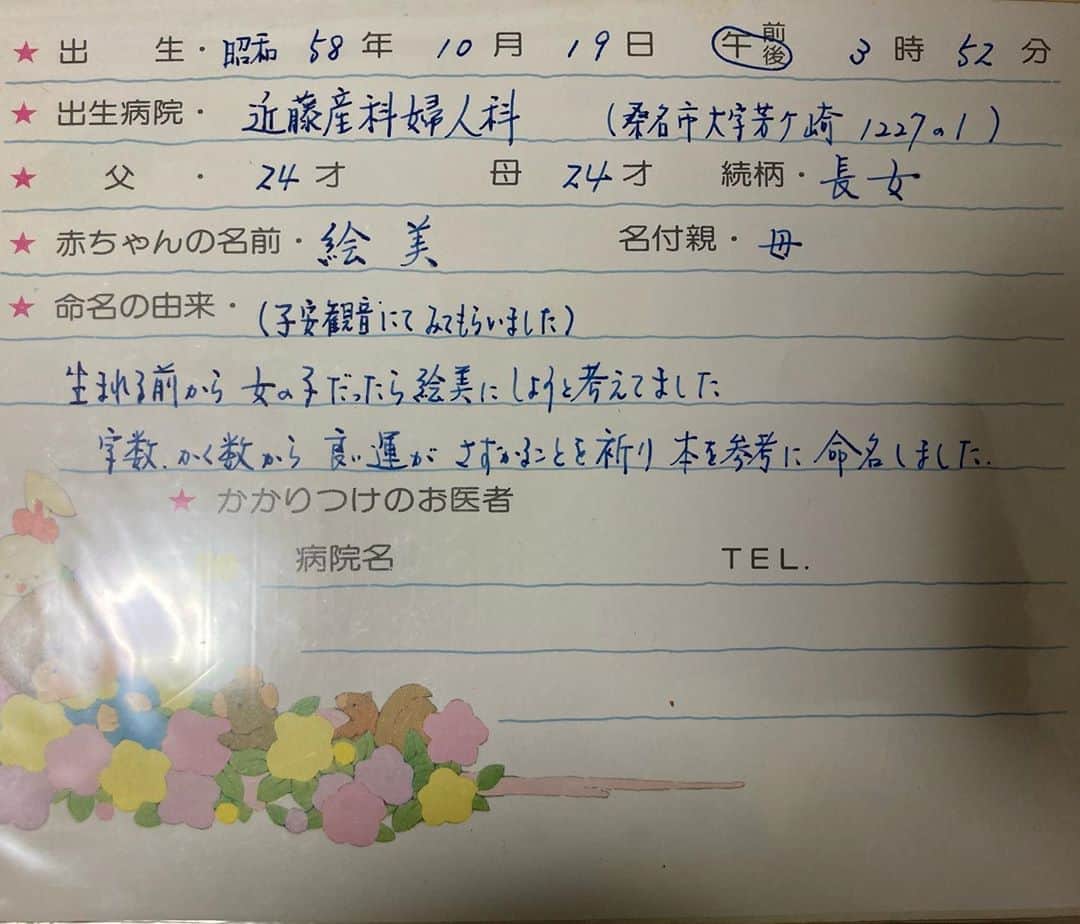 ★ 出生・昭和 58年 10月 19日 午前後 3時 52分
★ 出生病院・近藤産科婦人科 (桑名市大字芳ヶ崎 1227の1)
★ 父・24才 母 24才 続柄・長女
★ 赤ちゃんの名前・絵美 名付親・母
★ 命名の由来・(子安観音にてみてもらいました)
生まれる前から 女の子だったら絵美にしようと考えてました
字数、かく数から 良い運が さずかることを祈り 本を参考に 命名しました.
★ かかりつけのお医者
病院名 TEL.